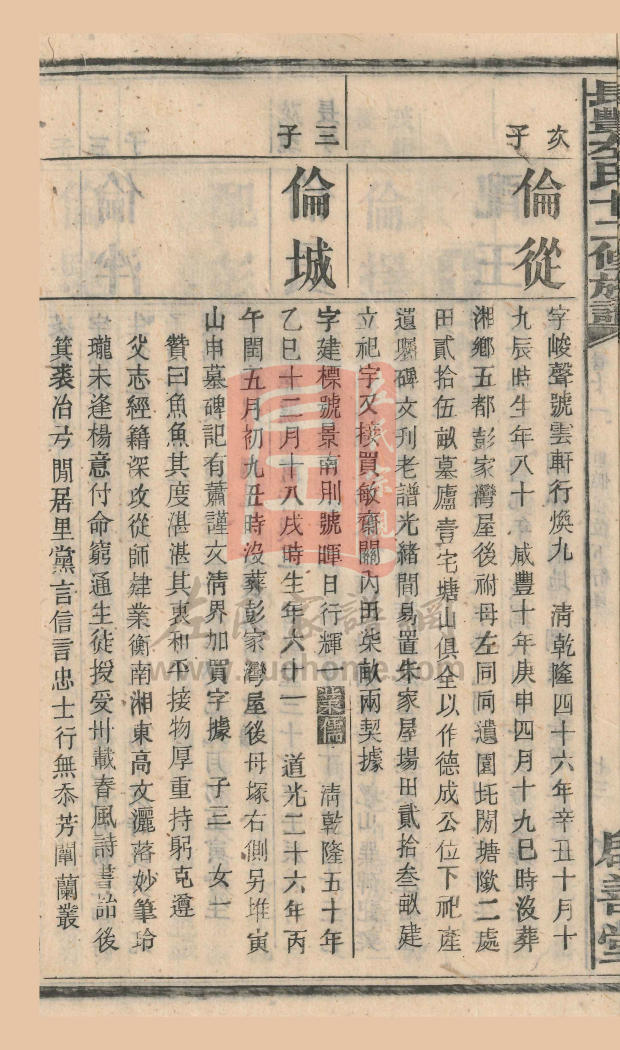 長豐左氏十二修族譜
居善堂
次子
倫從
字峻聲號雲軒行煥九 清乾隆四十六年辛丑十月十
九辰時生年八十 咸豐十年庚申四月十九巳時沒葬
湘鄉五都彭家灣屋後祔母左同同遺園坵閒塘墩二處
田貳拾伍畝墓廬壹宅塘山俱全以作德成公位下祀產
遺囑碑文刋老譜光緒間易置朱家屋場田貳拾叁畝建
立祀字又接買敏齋關內田柴畝兩契據
三子
倫城
字建標號景南別號暉日行輝 業儒 清乾隆五十年
乙巳十二月十八戌時生年六十一 道光二十六年丙
午閏五月初九丑時沒葬彭家灣屋後母塚右側另堆寅
山申墓碑記有蕭謹文清界加買字據 子三 女一
贊曰魚魚其度湛湛其衷和平接物厚重持躬克遵
父志經籍深攻從師肄業衡南湘東高文灑落妙筆玲
瓏未逢楊意付命窮通生徒授受卅載春風詩書詒後
箕裘冶弓閒居里黨言信言忠士行無忝芳闡蘭叢
www.zuohome.com